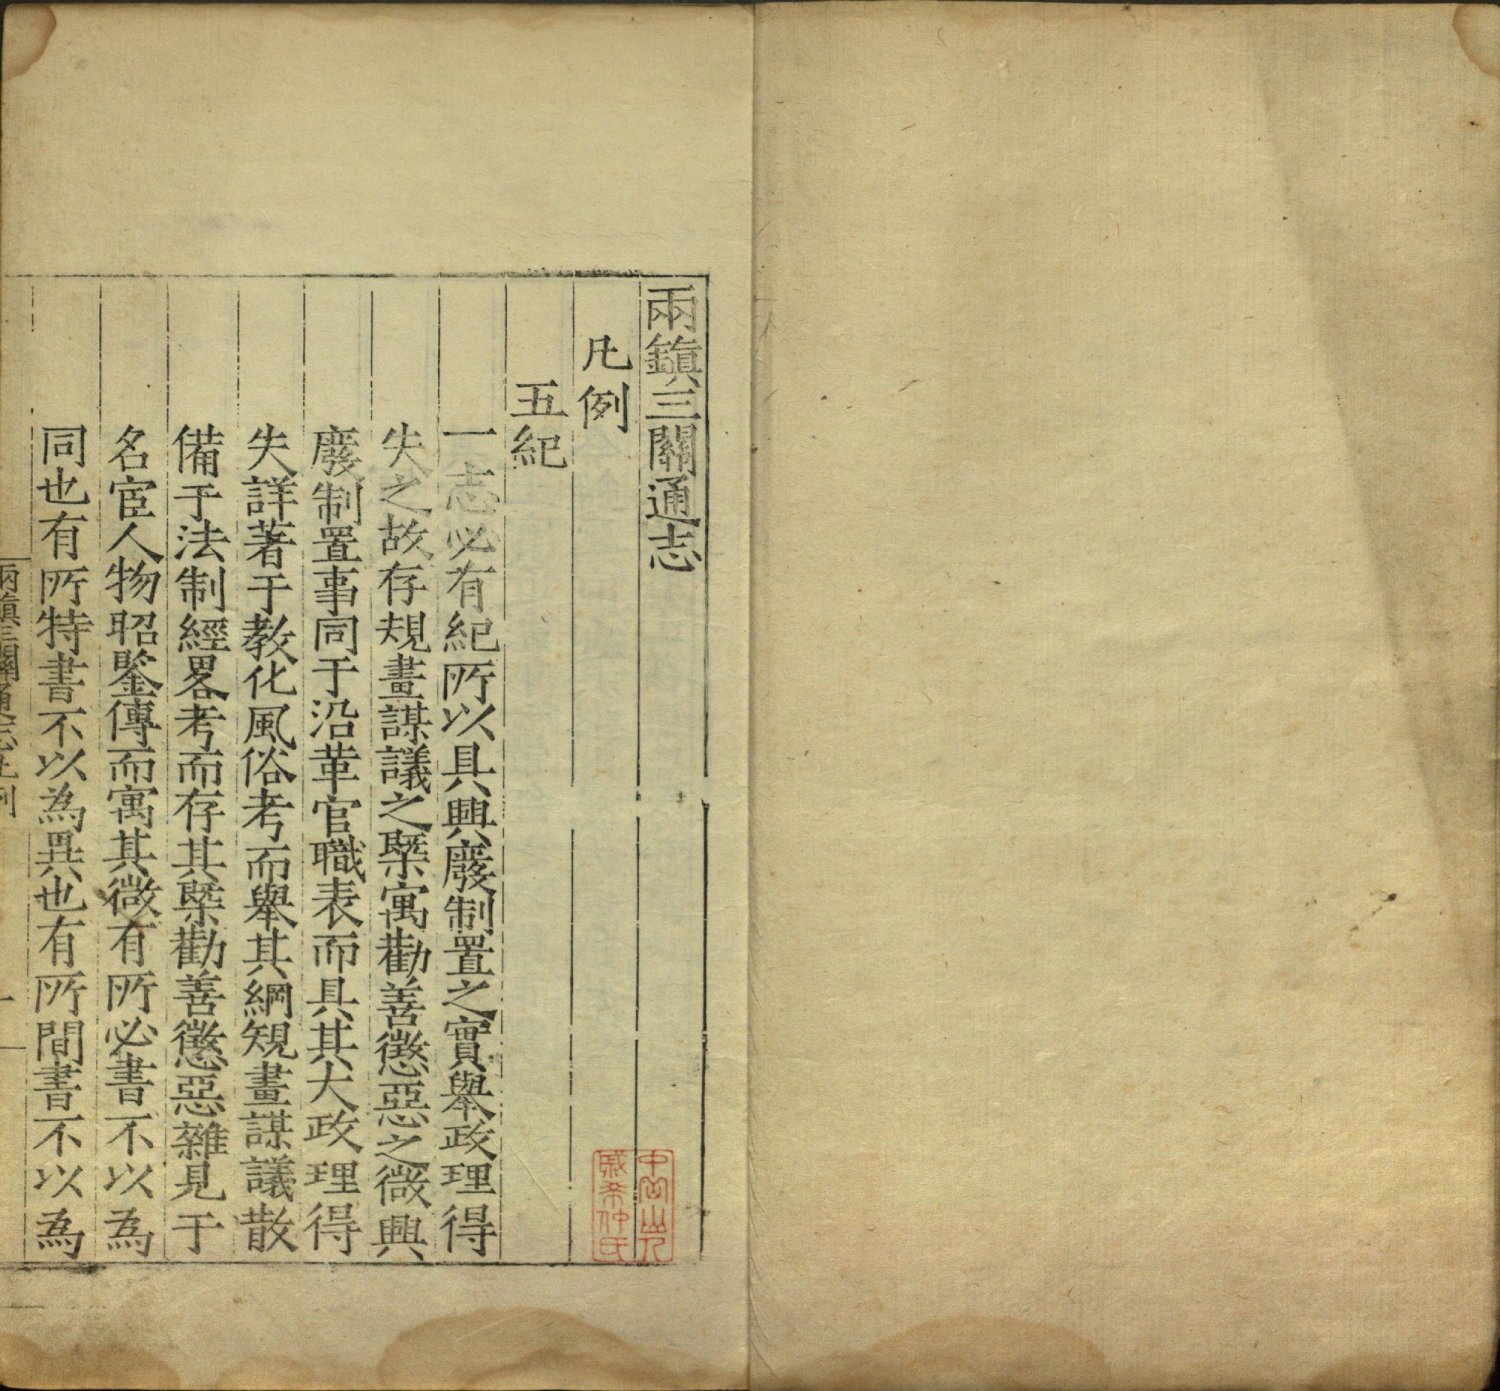 兩鎮三關通志
凡例
五紀
一志必有紀所以具興廢制置之實舉政理得
失之故存規畫謀議之槩寓勸善懲惡之微興
廢制置事同于沿革官職表而具其大政理得
失詳著于教化風俗考而舉其綱規畫謀議散
備于法制經畧考而存其槩勸善懲惡雜見于
名宦人物昭鑒傳而寓其微有所必書不以為
同也有所特書不以為異也有所間書不以為
兩鎮三關通志凡例
一